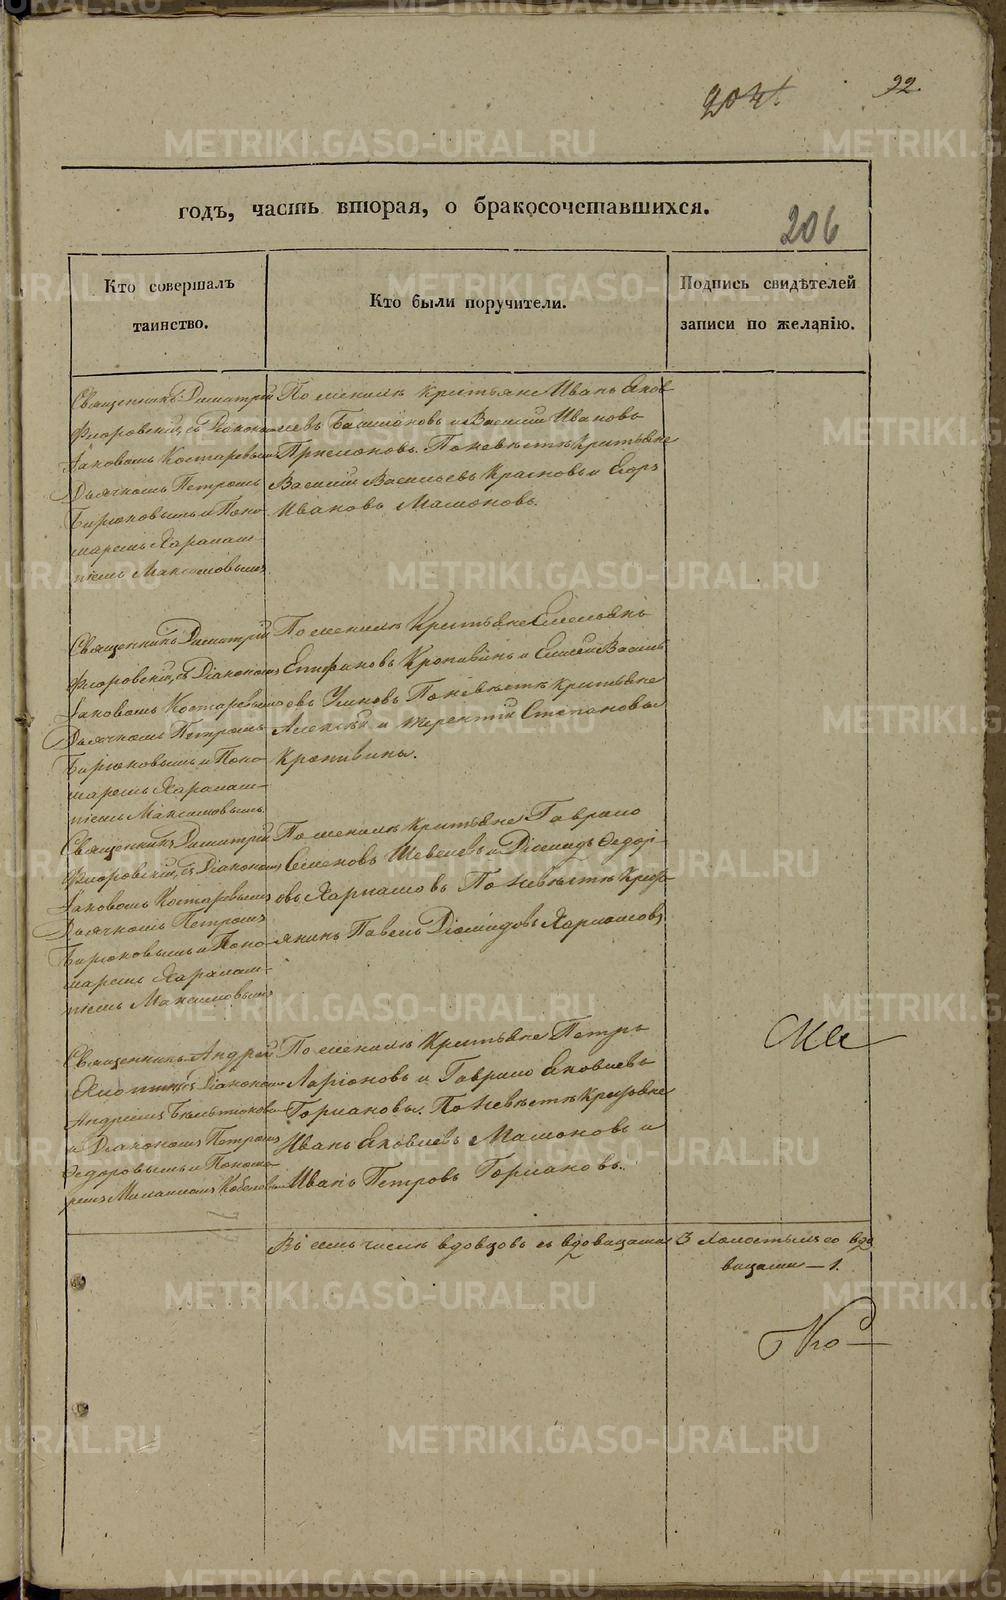 204.
92.
годъ, часть вторая, о бракосочетавшихся.
206
Кто совершалъ
таинство.
Кто были поручители.
Подпись свидѣтелей
записи по желанію.
Священникъ Димитрій
Флоровскій, съ Діакономъ
Іаковомъ Костаревымъ
Дьячкомъ Петромъ
Бирюковымъ и Поно-
маремъ Харалам-
піемъ Максимовымъ
По женихѣ крестьяне Иванъ Яков-
левъ и Василій Ивановъ
По невѣстѣ Крестьяне
Василій Васильевъ и Егоръ
Ивановъ Мамоновъ.
Священникъ Димитрій
Флоровскій, съ Діакономъ
Іаковомъ Костаревымъ
Дьячкомъ Петромъ
Бирюковымъ и Поно-
маремъ Харалам-
піемъ Максимовымъ
По женихѣ Крестьяне Емельянъ
Епифановъ Кропивинъ и Елисей Василь-
евъ По невѣстѣ Крестьяне
Алексѣй и Терентій Степановы
Кропивины.
Священникъ Димитрій
Флоровскій, съ Діакономъ
Іаковомъ Костаревымъ
Дьячкомъ Петромъ
Бирюковымъ и Поно-
маремъ Харалам-
піемъ Максимовымъ
По женихѣ Крестьяне Гаврило
Семеновъ Шевелевъ и Діомидъ Ѳедор-
овъ По невѣстѣ Крест-
янинъ Павелъ Діомидовъ
Священникъ Андрей
съ Діакономъ
Андреемъ
и Дьячкомъ Петромъ
Ѳедоровымъ и Понома-
ремъ
По женихѣ Крестьяне Петръ
Ларіоновъ и Гаврило Яковлевъ
Гормановы. По невѣстѣ Крестьяне
Иванъ Яковлевъ Мамоновъ и
Иванъ Петровъ Гормановъ.
Въ семъ числѣ вдовцовъ съ вдовицами 3 холостыхъ со вдо-
вицами — 1.
METRIKI.GASO-URAL.RU